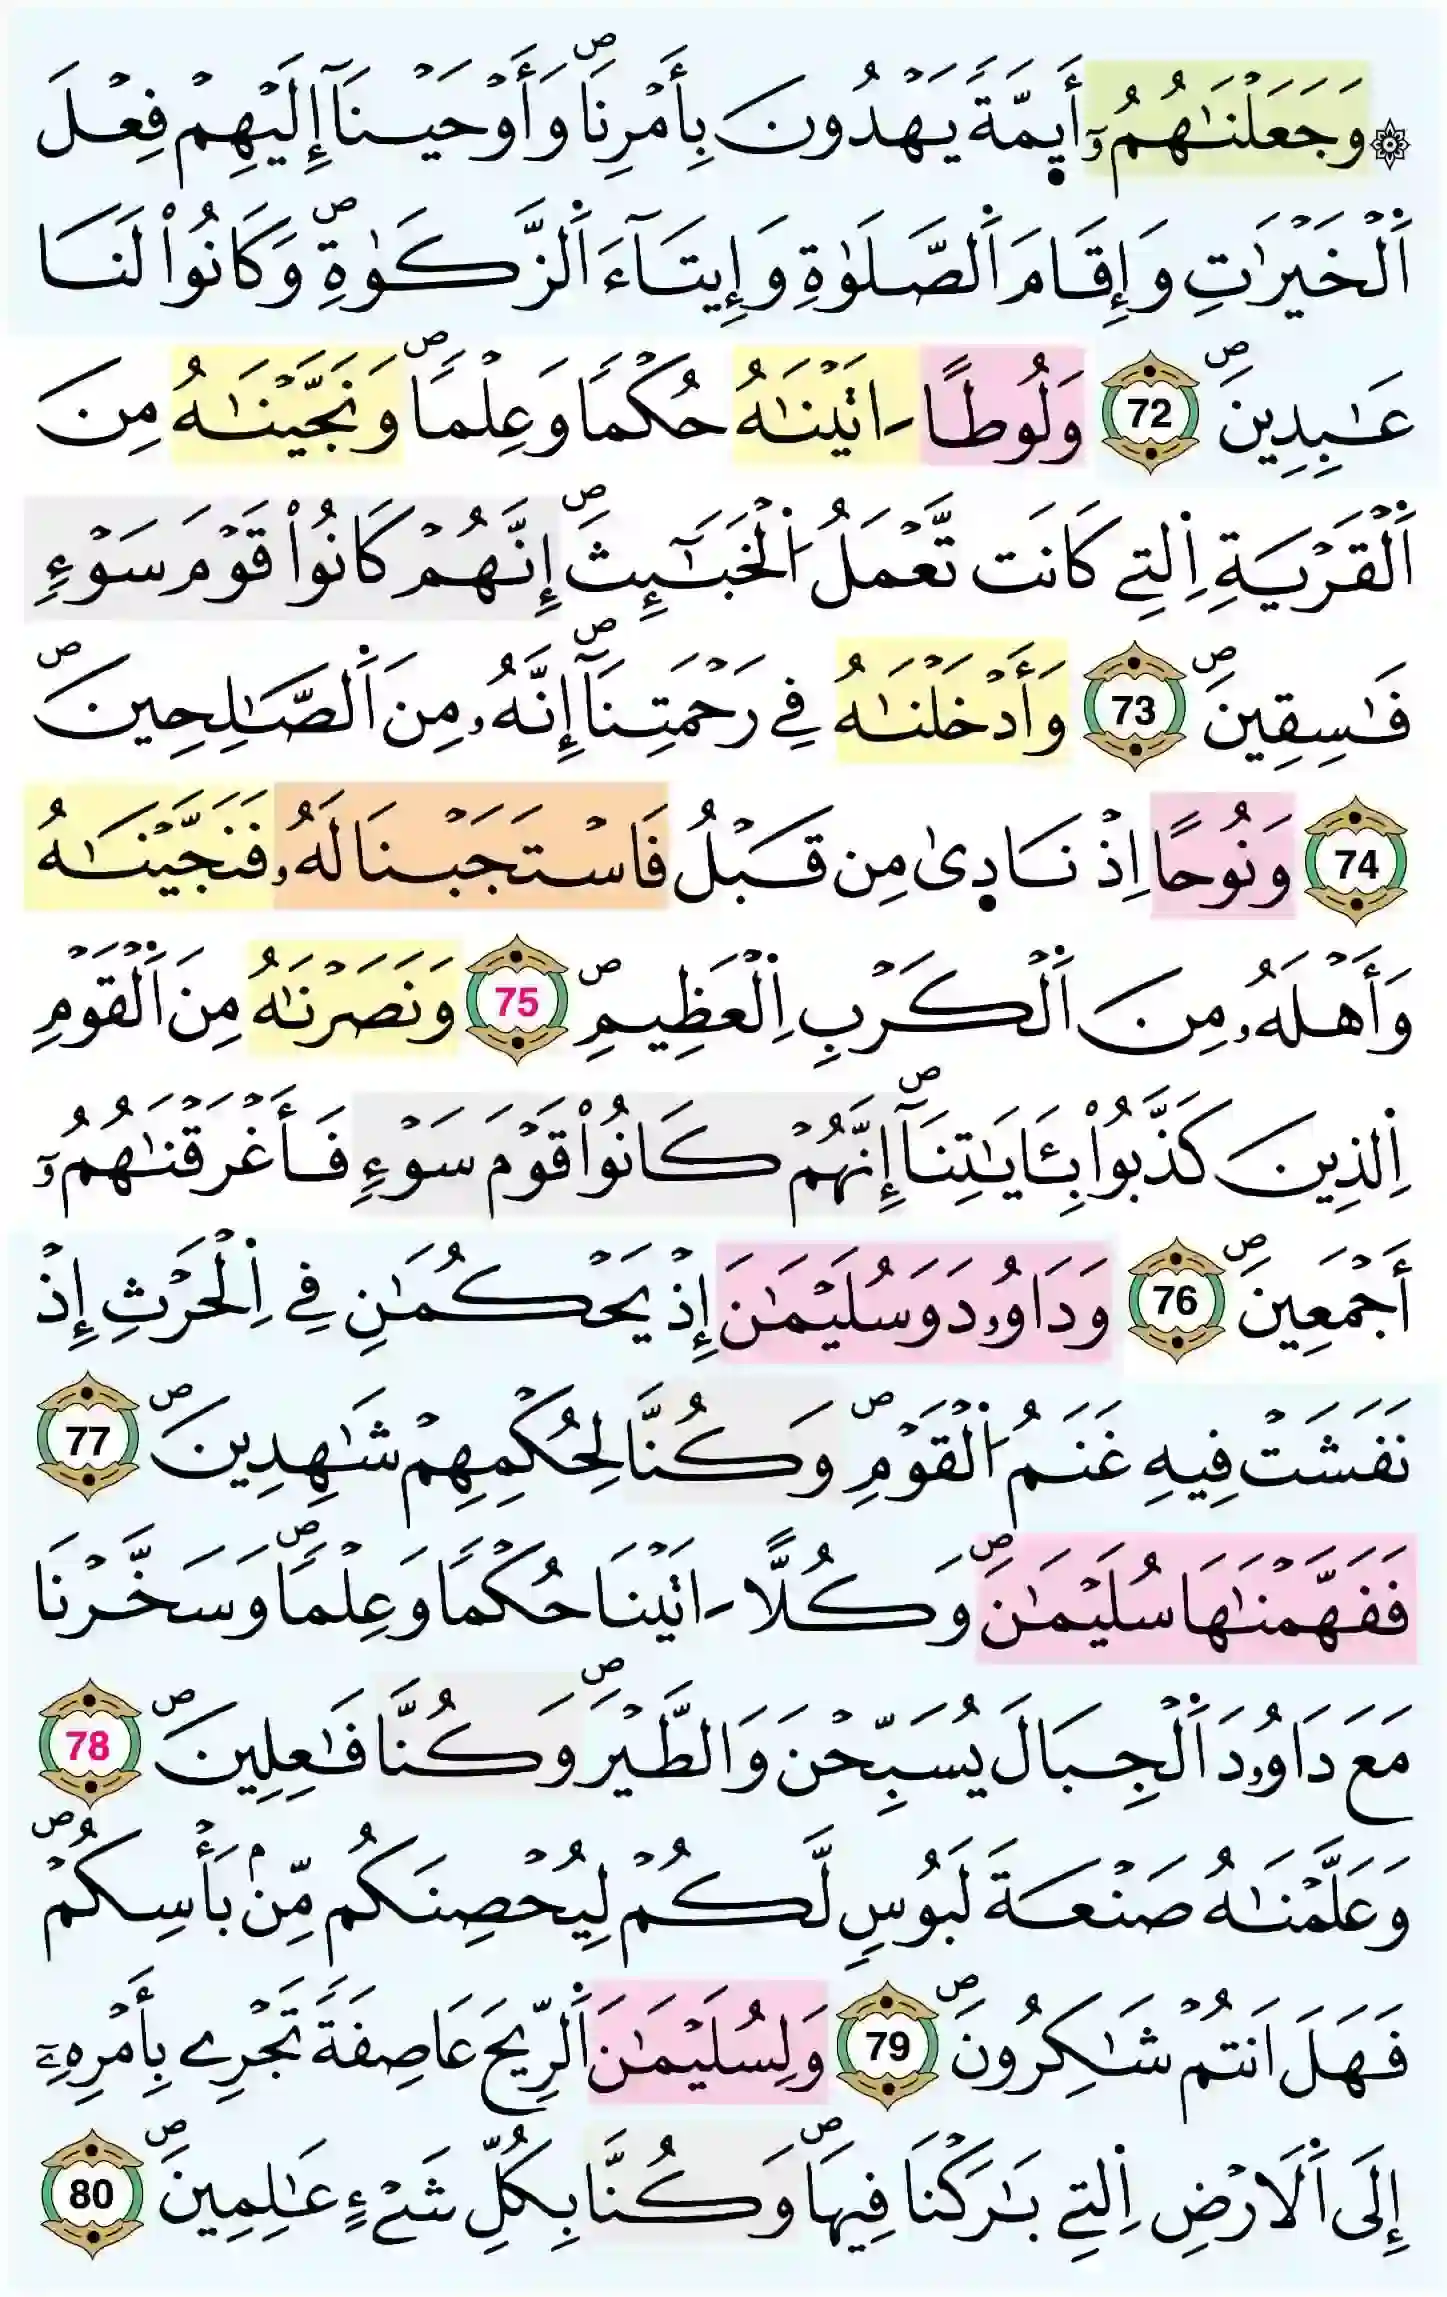 ۞ وَجَعَلْنَٰهُمُۥٓ أَيِمَّةً يَهْدُونَ بِأَمْرِنَاۖ وَأَوْحَيْنَآ إِلَيْهِمْ فِعْلَ
اَ۬لْخَيْرَٰتِ وَإِقَامَ اَ۬لصَّلَوٰةِ وَإِيتَآءَ اَ۬لزَّكَوٰةِۖ وَكَانُواْ لَنَا
عَٰبِدِينَۖ 72 وَلُوطًا ـ اتَيْنَٰهُ حُكْماً وَعِلْماٗۖ وَنَجَّيْنَٰهُ مِنَ
اَ۬لْقَرْيَةِ اِ۬لتِے كَانَت تَّعْمَلُ اُ۬لْخَبَٰٓئِثَۖ إِنَّهُمْ كَانُواْ قَوْمَ سَوْءٖ
فَٰسِقِينَۖ 73 وَأَدْخَلْنَٰهُ فِے رَحْمَتِنَآۖ إِنَّهُۥ مِنَ اَ۬لصَّٰلِحِينَۖ
74 وَنُوحاً اِذْ نَادٜىٰ مِن قَبْلُ فَاسْتَجَبْنَا لَهُۥ فَنَجَّيْنَٰهُ
وَأَهْلَهُۥ مِنَ اَ۬لْكَرْبِ اِ۬لْعَظِيمِۖ 75 وَنَصَرْنَٰهُ مِنَ اَ۬لْقَوْمِ
اِ۬لذِينَ كَذَّبُواْ بِـَٔايَٰتِنَآۖ إِنَّهُمْ كَانُواْ قَوْمَ سَوْءٖ فَأَغْرَقْنَٰهُمُۥٓ
أَجْمَعِينَۖ 76 وَدَاوُۥدَ وَسُلَيْمَٰنَ إِذْ يَحْكُمَٰنِ فِے اِ۬لْحَرْثِ إِذْ
نَفَشَتْ فِيهِ غَنَمُ اُ۬لْقَوْمِۖ وَكُنَّا لِحُكْمِهِمْ شَٰهِدِينَۖ 77
فَفَهَّمْنَٰهَا سُلَيْمَٰنَۖ وَكُلّاً ـ اتَيْنَا حُكْماً وَعِلْماٗۖ وَسَخَّرْنَا
مَعَ دَاوُۥدَ اَ۬لْجِبَالَ يُسَبِّحْنَ وَالطَّيْرَۖ وَكُنَّا فَٰعِلِينَۖ 78
وَعَلَّمْنَٰهُ صَنْعَةَ لَبُوسٖ لَّكُمْ لِيُحْصِنَكُم مِّنۢ بَأْسِكُمْۖ
فَهَلَ اَنتُمْ شَٰكِرُونَۖ 79 وَلِسُلَيْمَٰنَ اَ۬لرِّيحَ عَاصِفَةٗ تَجْرِے بِأَمْرِهِۦٓ
إِلَى اَ۬لَارْضِ اِ۬لتِے بَٰرَكْنَا فِيهَاۖ وَكُنَّا بِكُلِّ شَےْءٍ عَٰلِمِينَۖ 80